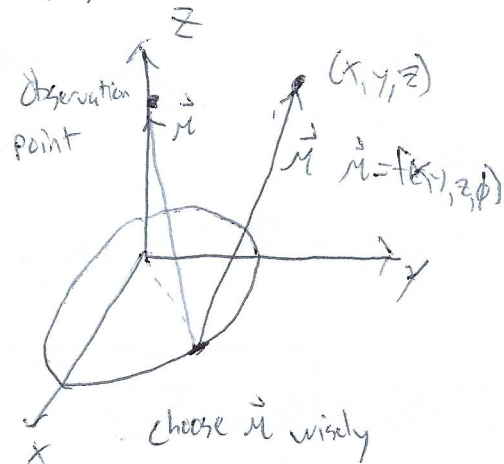 Z
Observation
point
(x, y, z)
r⃗
r⃗ r⃗ = f(x, y, z, ϕ)
y
x
choose r⃗ wisely